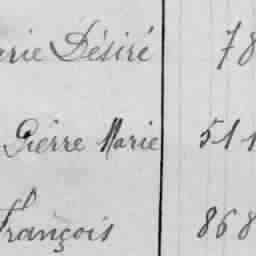 erie Désiré 78
Pierre Marie 511
François 868